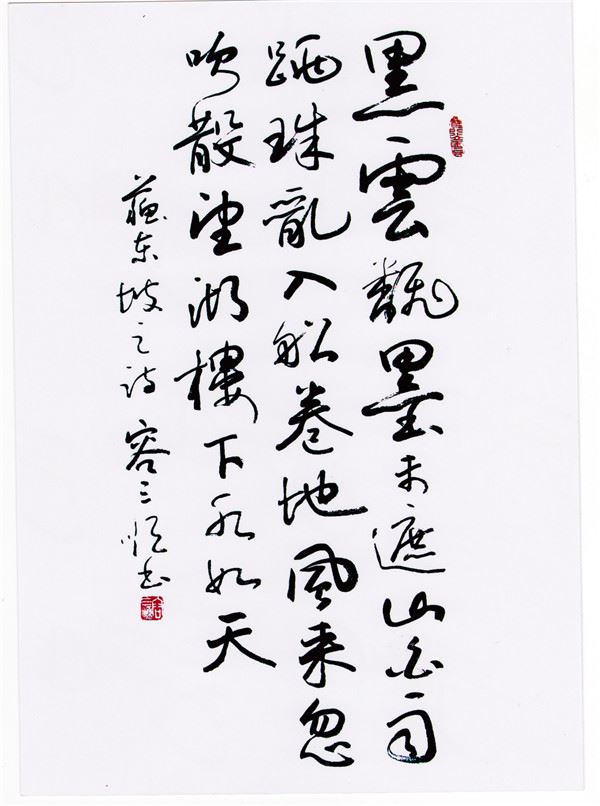 黑雲翻墨未遮山白雨
跳珠亂入船卷地風来忽
吹散望湖樓下水如天
蘇东坡之诗 容三书